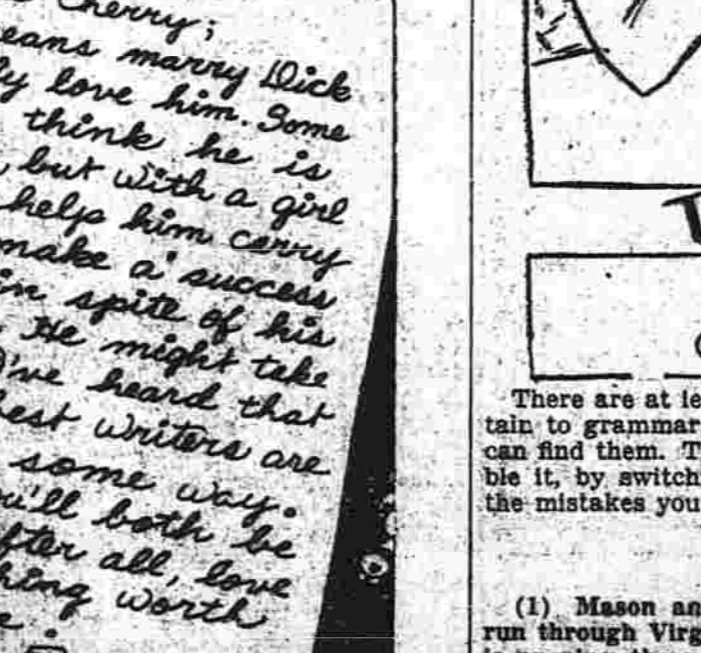 Cherry;
eans marry Dick
ly love him. Some
think he is
, but with a girl
help him carry
make a success
in spite of his
. He might take
I've heard that
est writers are
some way.
ou'll both be
fter all, love
hing worth
There are at le
tain to grammar
can find them. T
ble it, by switch
the mistakes you
(1) Mason an
run through Virg